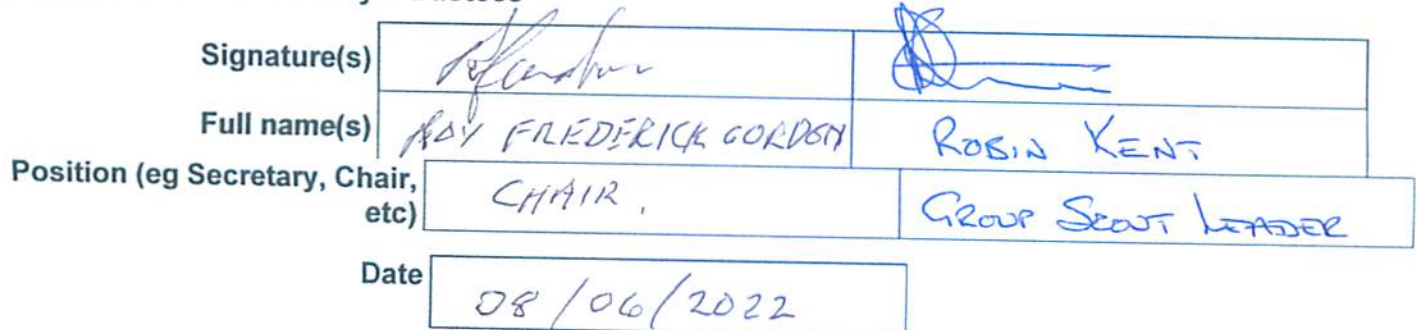 Signature(s)
Full name(s) ROY FREDERICK GORDON ROBIN KENT
Position (eg Secretary, Chair, CHAIR. GROUP SCOUT LEADER
etc)
Date 08/06/2022